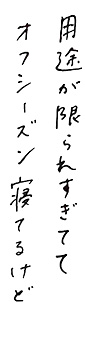 用途が限られすぎてて
オフシーズン寝てるけど